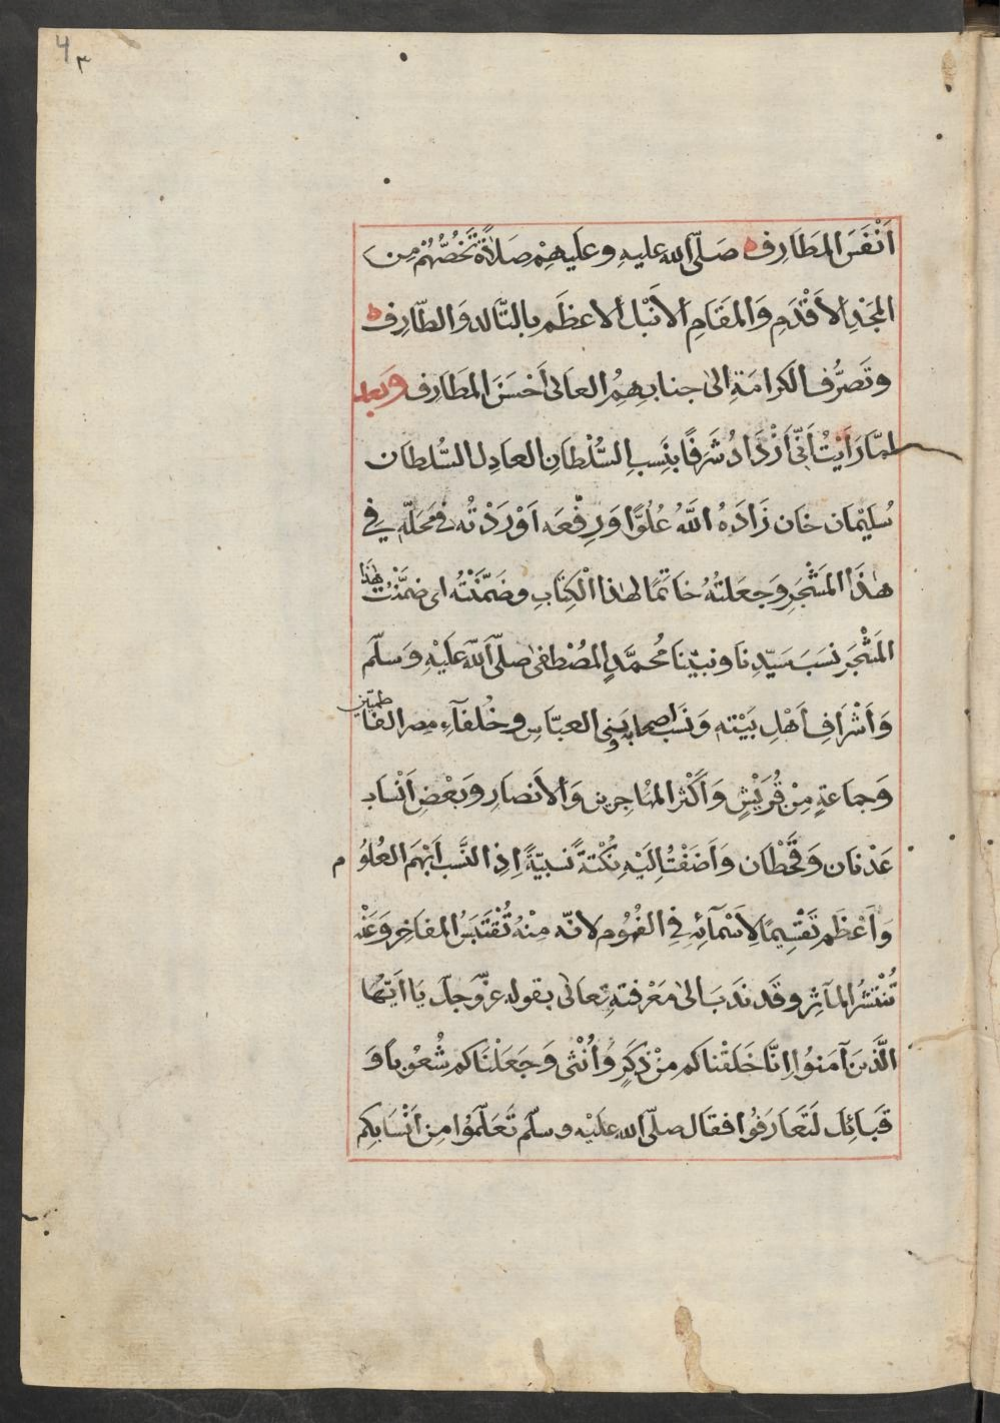 4
٣
اَنْفَسَ المَطَارِفِ صَلّى اللّه عليهِ وعلَيهِمْ صَلاةً تَخُصُّهُمْ مِنَ
المَجْدِ الاَقْدَمِ وَالمَقَامِ الاَنْبَلِ الاَعظَمِ بالتَّالدِ وَالطّارِفِ
وتَصَرُّف الكَرامَةِ الىٰ جنابِهِمُ العالى اَحْسَنَ المَطَارِف وبَعد
لمّا رَاَيْتُ اَنّى اَزْدَادُ شَرَفًا بنَسبِ السُّلْطانِ العادِل السُّلطان
سُلَيْمان خان زَادَهُ اللَّهُ عُلُوًّا وَرِفْعَه اَوْرَدْتُه فى مَحَلّه فى
هٰذَا المَشْجَر وَجعَلتُهُ خاتَمًا لهٰذا الْكِتَابِ وضَمَّنْتُه اى ضمَّنْتُ هٰذا
المَشْجَر نسَبَ سَيّدِنا ونبيّنَا مُحمَّدٍ المصْطفىٰ صلّى اللّه عَلَيْهِ وَسلّم
وَاَشْرَافِ اَهْلِ بَيْتهِ وَنَسَب اصحابه وَبَنِى العبّاسِ وخُلفآءِ مصر الفاطميّين
وَجماعةٍ مِنْ قُرَيْشٍ وَاَكْثر المهُاجِرين وَالاَنصَار وبَعْضِ اَنْساب
عَدْنان وَقَحْطَان وَاَضَفْتُ اِلَيْهِ نُكْتةً نَسبيّةً اِذِ النَّسَب اَبْهَم العُلُوُم
وَاَعْظَم تَقْسِيمًا لِاَسْمآئِهِ فِى الفُهُوُم لانّه مِنْهُ تُقْتَبَسُ المفَاخِر وَعَنْه
تُنْتشَرُ المآثِر وقَد نَدَبَ الىٰ مَعْرِفتهِ تعالىٰ بقوله عزّوجلّ يَا اَيّهَا
الَّذينَ آمَنوُا اِنَّا خَلَقْناكم مِنْ ذكَرٍ وَاُنْثى وَجَعَلْنَاكم شُعُوْبا وَ
قَبائِل لتَعَارَفُوا فقال صلّى اللّه علَيْه وسلّم تَعَلّمَوُا مِن اَنْسَابِكم